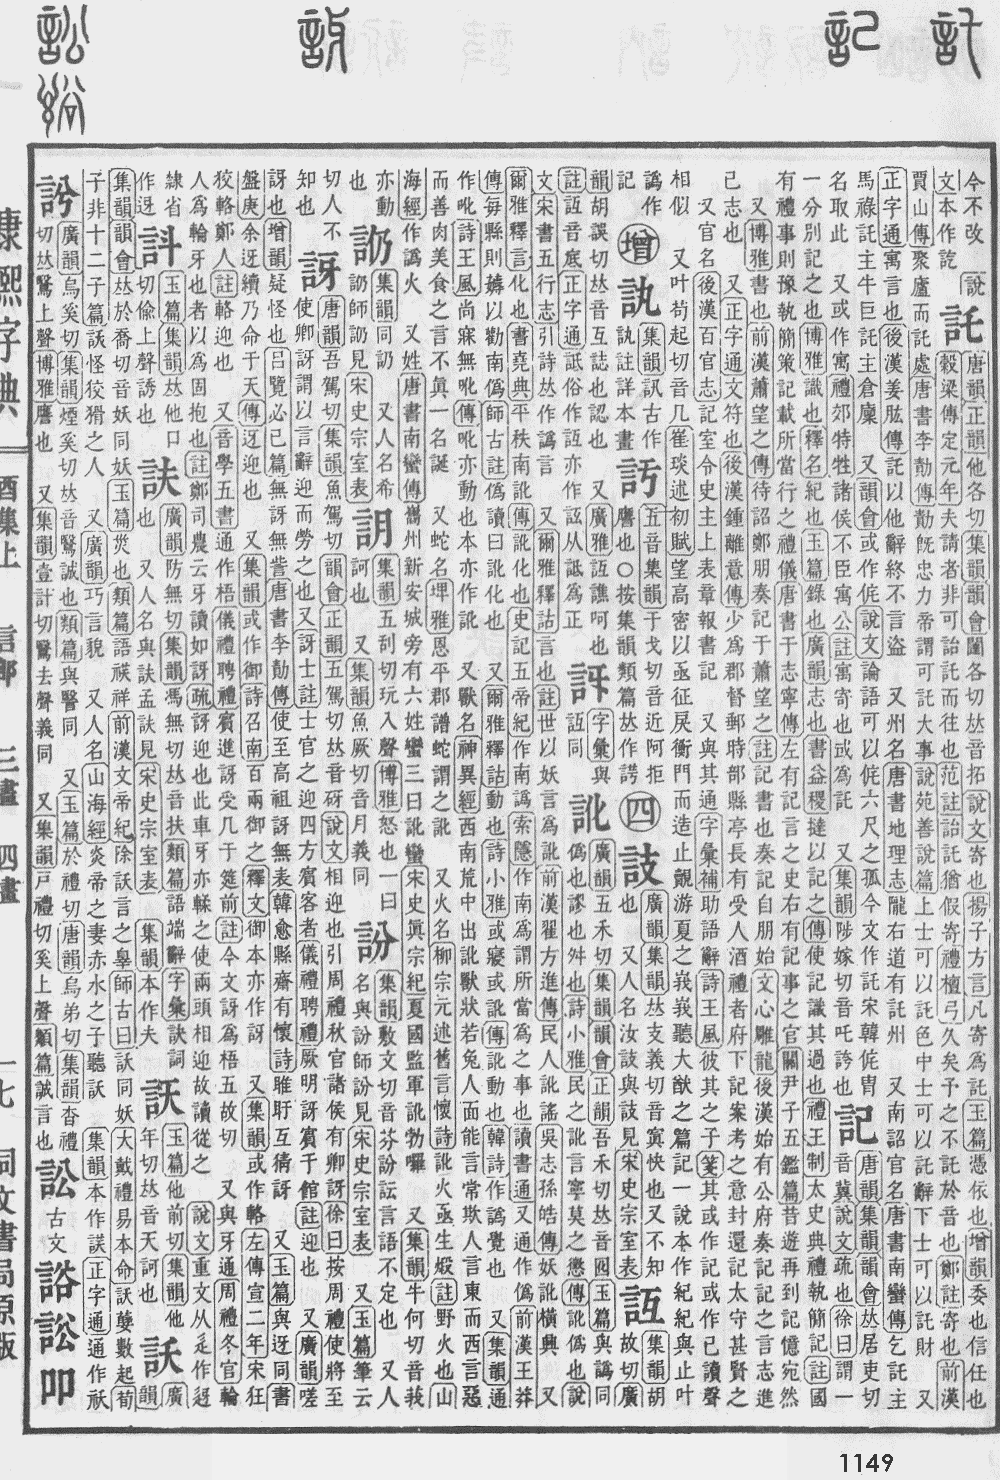 計 記 訤 訟 𧮫
今不改 說 託 唐韻正韻他各切集韻韻會闥各切𠀤音拓說文寄也揚子方言凡寄爲託玉篇憑依也增韻委也信任也
文本作託 穀梁傳定元年夫請者非可詒託而往也范註詒託猶假寄禮檀弓久矣予之不託於音也鄭註寄也前漢
賈山傳聚廬而託處唐書李勣傳勣旣忠力帝謂可託大事說苑善說篇上士可以託色中士可以託辭下士可以託財 又
正字通寓言也後漢姜肱傳託以他辭終不言盜 又州名唐書地理志隴右道有託州 又南詔官名唐書南蠻傳乞託主
馬祿託主牛巨託主倉廩 又韻會或作侂說文論語可以侂六尺之孤今文作託宋韓侂冑 記 唐韻集韻韻會𠀤居吏切
名取此 又或作寓禮郊特牲諸侯不臣寓公註寓寄也或爲託 又集韻陟嫁切音吒誇也 音冀說文疏也徐曰謂一
一分別記之也博雅識也釋名紀也玉篇錄也廣韻志也書益稷撻以記之傳使記識其過也禮王制太史典禮執簡記註國
有禮事則豫執簡策記載所當行之禮儀唐書于志寧傳左有記言之史右有記事之官關尹子五鑑篇昔遊再到記憶宛然
又博雅書也前漢蕭望之傳待詔鄭朋奏記于蕭望之註記書也奏記自朋始文心雕龍後漢始有公府奏記記之言志進
己志也 又正字通文符也後漢鍾離意傳少爲郡督郵時部縣亭長有受人酒禮者府下記案考之意封還記太守甚賢之
又官名後漢百官志記室令史主上表章報書記 又與其通字彙補助語辭詩王風彼其之子箋其或作記或作己讀聲
相似 又叶苟起切音几崔琰述初賦望高密以亟征戾衡門而造止覿游夏之峩峩聽大猷之篇記一說本作紀紀與止叶
譌作記 增 訙 集韻訊古作訙註詳本畫 䚽 五音集韻于戈切音近阿拒譍也○按集韻類篇𠀤作謣 四 䚳 廣韻集韻𠀤支義切音寘快也又不知也 又人名汝䚳與䚳見宋史宗室表 䛎 集韻胡故切廣
韻胡誤切𠀤音互誌也認也 又廣雅䛎譕呵也 訝 字彙與䛎同 訛 廣韻五禾切集韻韻會正韻吾禾切𠀤音囮玉篇與譌同
註䛎音底正字通詆俗作䛎亦作𧧻从詆爲正 僞也謬也舛也詩小雅民之訛言寧莫之懲傳訛僞也說
文宋書五行志引詩𠀤作譌言 又爾雅釋詁言也註世以妖言爲訛前漢翟方進傳民人訛謠吳志孫皓傳妖訛橫興 又
爾雅釋言化也書堯典平秩南訛傳訛化也史記五帝紀作南譌索隱作南爲謂所當爲之事也讀書通又通作僞前漢王莽
傳每縣則耨以勸南僞師古註僞讀曰訛化也 又爾雅釋詁動也詩小雅或寢或訛傳訛動也韓詩作譌覺也 又集韻通
作吪詩王風尚寐無吪傳吪亦動也本亦作訛 又獸名神異經西南荒中出訛獸狀若兔人面能言常欺人言東而西言惡
而善肉美食之言不眞一名誕 又蛇名埤雅恩平郡譜蛇謂之訛 又火名柳宗元述舊言懷詩訛火亟生煅註野火也山
海經作譌火 又姓唐書南蠻傳巂州新安城旁有六姓蠻三曰訛蠻宋史眞宗紀夏國監軍訛勃囉 又集韻牛何切音莪
亦動也 訒 集韻同訒 又人名希訒師訒見宋史宗室表 䚮 集韻五刮切玩入聲博雅怒也一曰訶也 又集韻魚厥切音月義同 訜 集韻敷文切音芬訜訫言語不定也 又人名與訜師訜見宋史宗室表 又玉篇筆云
切人不知也 訝 唐韻吾駕切集韻魚駕切韻會正韻五駕切𠀤音砑說文相迎也引周禮秋官諸侯有卿訝徐曰按周禮使將至
使卿訝謂以言辭迎而勞之也又訝士註士官之迎四方賓客者儀禮聘禮厥明訝賓于館註迎也 又廣韻嗟
訝也增韻疑怪也呂覽必己篇無訝無訾唐書李勣傳使至高祖訝無表韓愈縣齋有懷詩睢盱互猜訝 又玉篇與迓同書
盤庚余迓續乃命于天傳迓迎也 又集韻或作御詩召南百兩御之釋文御本亦作訝 又集韻或作輅左傳宣二年宋狂
狡輅鄭人註輅迎也 又音學五書通作梧儀禮聘禮賓進訝受几于筵前註今文訝爲梧五故切 又與牙通周禮冬官輪
人爲輪牙也者以爲固抱也註鄭司農云牙讀如訝疏訝迎也此車牙亦輮之使兩頭相迎故讀從之 說文重文从辵作迓
隸省作迓 䚵 玉篇集韻𠀤他口切偸上聲誘也 訣 廣韻防無切集韻馮無切𠀤音扶類篇語端辭字彙訣詞也 又人名與訣孟訣見宋史宗室表 集韻本作夫 訞 玉篇他前切集韻他年切𠀤音天訶也 訞 廣韻
集韻韻會𠀤於喬切音妖同妖玉篇災也類篇語祅祥前漢文帝紀除訞言之辠師古曰訞同妖大戴禮易本命訞孽數起荀
子非十二子篇訞怪狡猾之人 又廣韻巧言貌 又人名山海經炎帝之妻赤水之子聽訞 集韻本作䛂正字通通作祅
訡 廣韻烏奚切集韻煙奚切𠀤音鷖誠也類篇與䃜同 又玉篇於禮切唐韻烏弟切集韻杳禮
切𠀤鷖上聲博雅譍也 又集韻壹計切鷖去聲義同 又集韻戸禮切奚上聲類篇誠言也 訟 古文 䛦 𧧏 㕕
康熙字典 酉集上 言部 三畫 四畫 一七 同文書局原版
1149